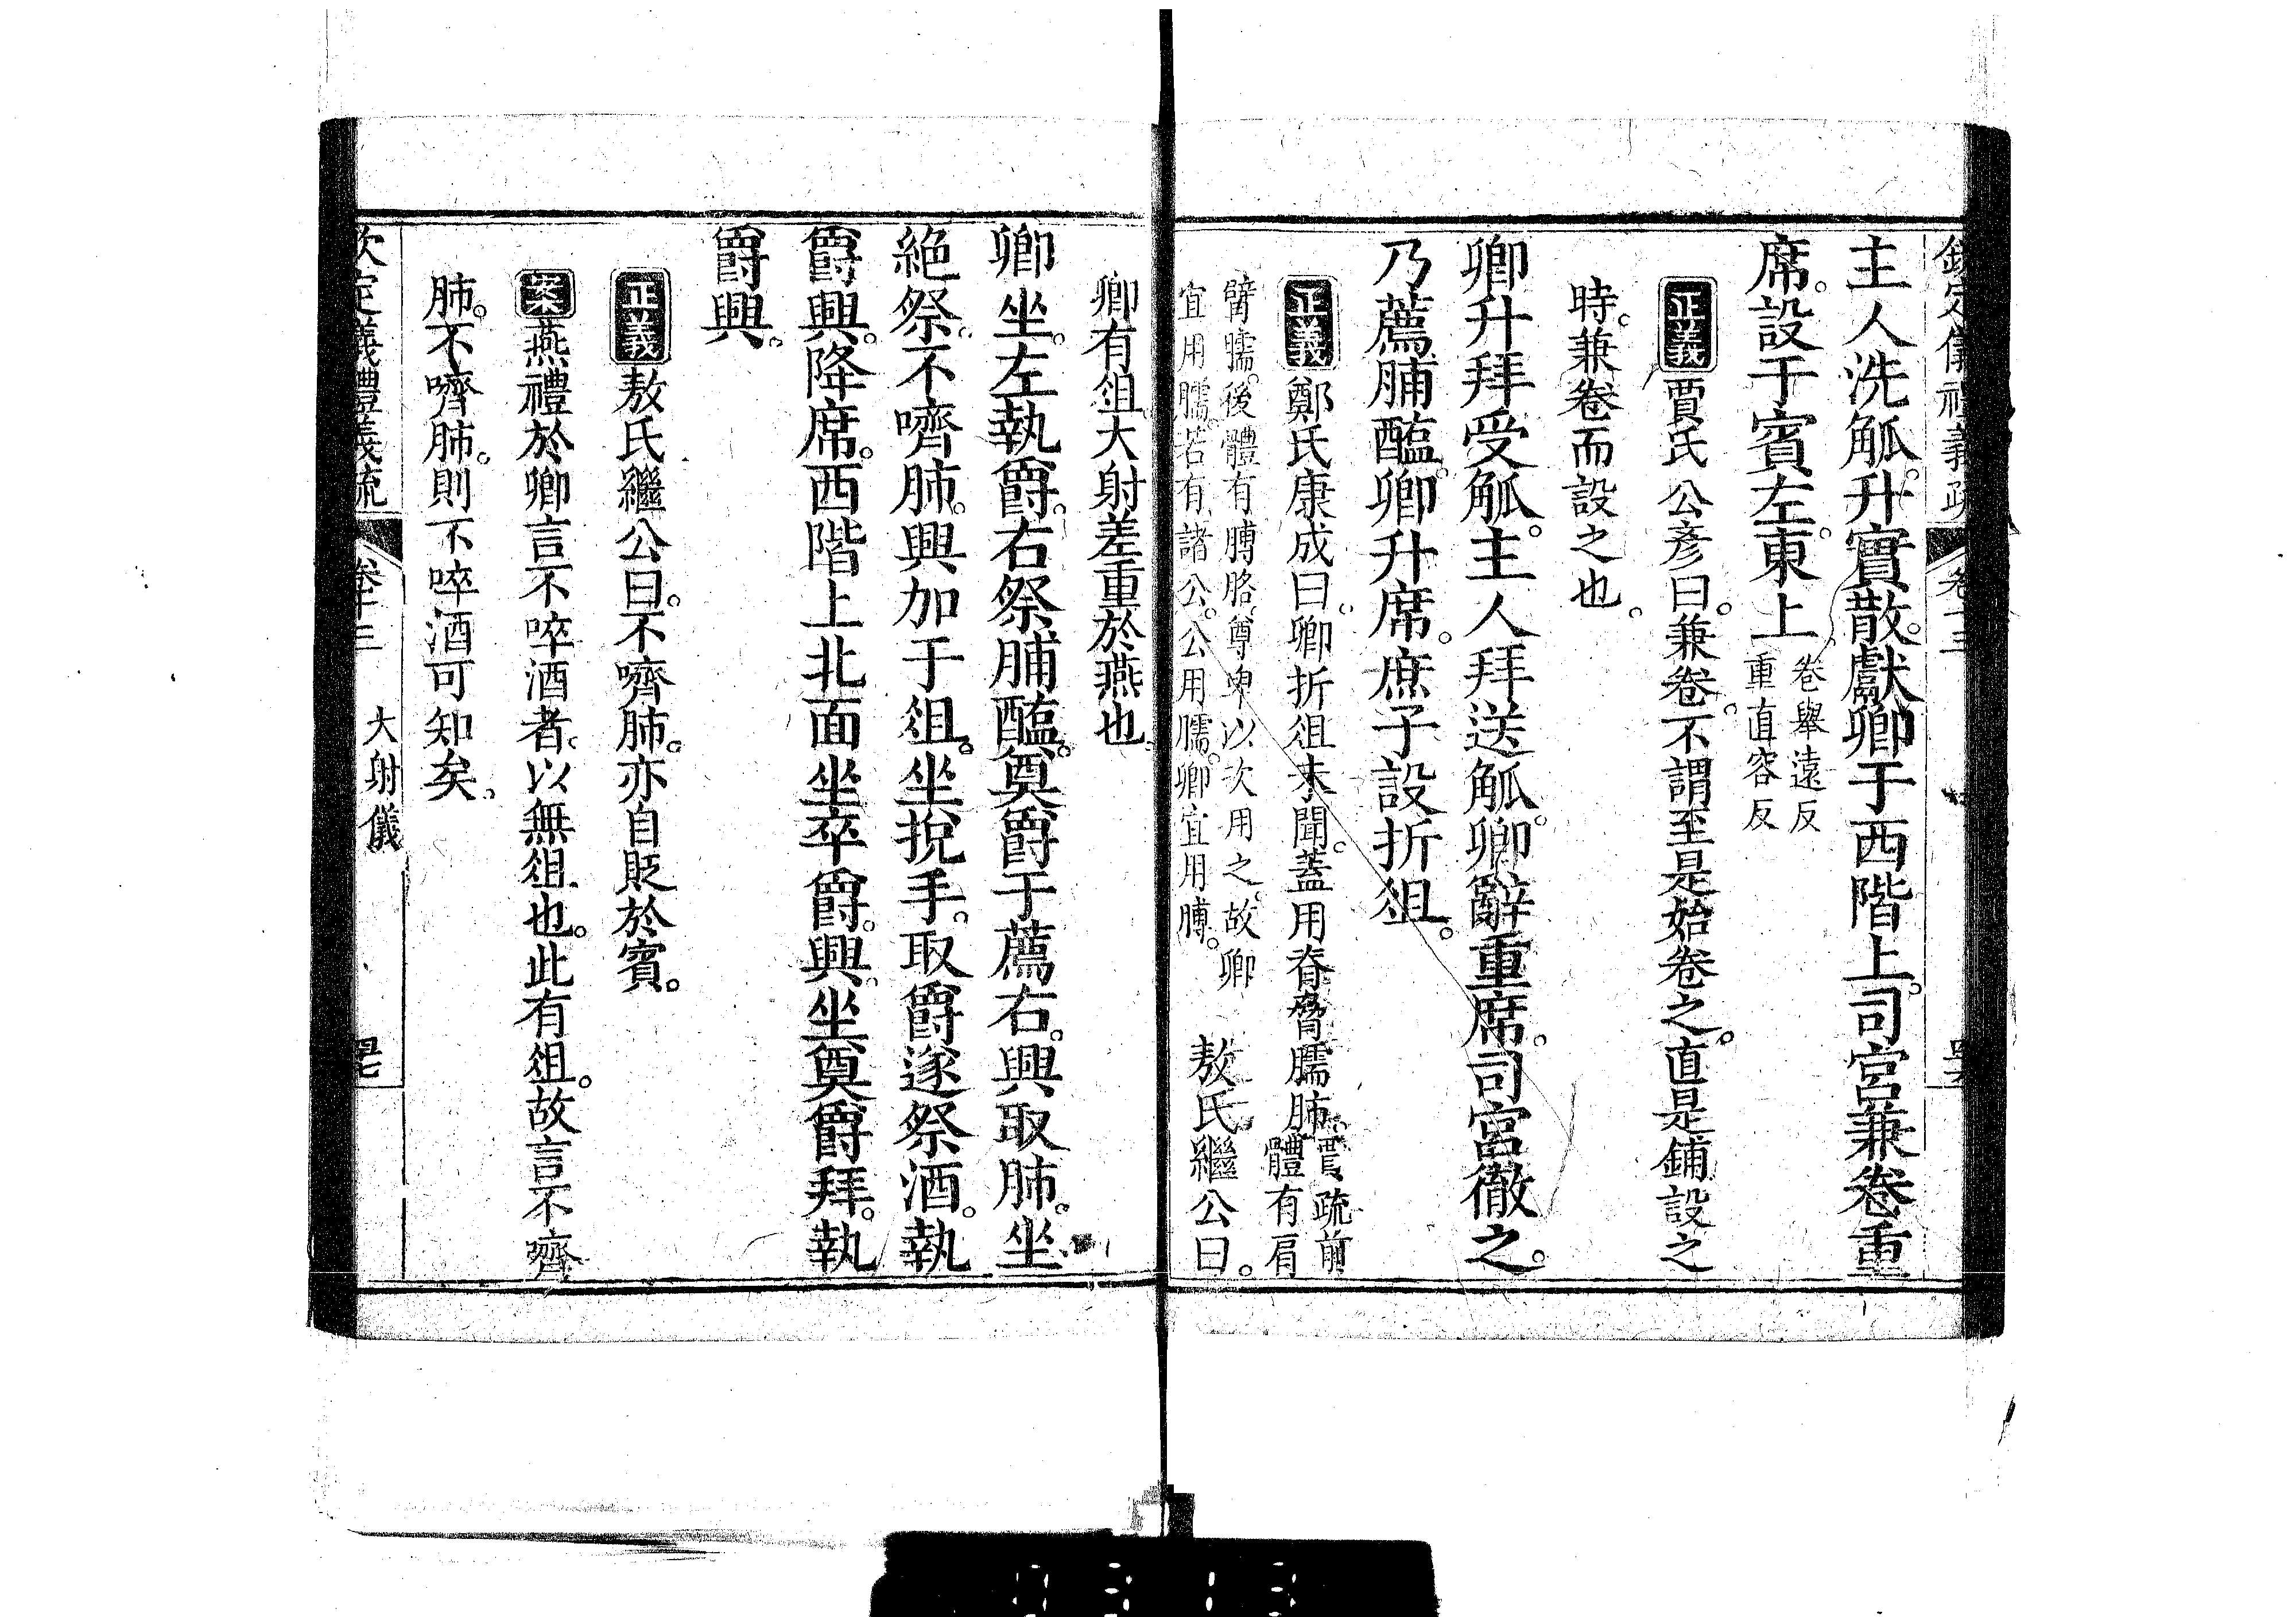 欽定儀禮義疏 卷十三 四六
主人洗觚。升實散。獻卿于西階上。司宮兼卷重
席。設于賓左。東上卷舉遠反
重直容反
正義 賈氏公彥曰。兼卷。不謂至是始卷之。直是鋪設之
時。兼卷而設之也。
卿升拜受觚。主人拜送觚。卿辭重席。司宮徹之。
乃薦脯醢。卿升席。庶子設折俎。
正義 鄭氏康成曰。卿折俎未聞。蓋用脊脅臑肺。賈疏前
體有肩
臂臑。後體有膊胳。尊卑以次用之。故卿
宜用臑。若有諸公。公用臑。卿宜用膊。
敖氏繼公曰。
卿有俎。大射差重於燕也。
卿坐。左執爵。右祭脯醢。奠爵于薦右。興取肺。坐
絕祭。不嚌肺。興加于俎。坐挩手。取爵遂祭酒。執
爵興。降席。西階上北面坐卒爵。興。坐奠爵拜。執
爵興。
正義 敖氏繼公曰。不嚌肺。亦自貶於賓。
案 燕禮於卿言不啐酒者。以無俎也。此有俎。故言不嚌
肺。不嚌肺。則不啐酒可知矣。
欽定儀禮義疏 卷十三 大射儀 四七
0313